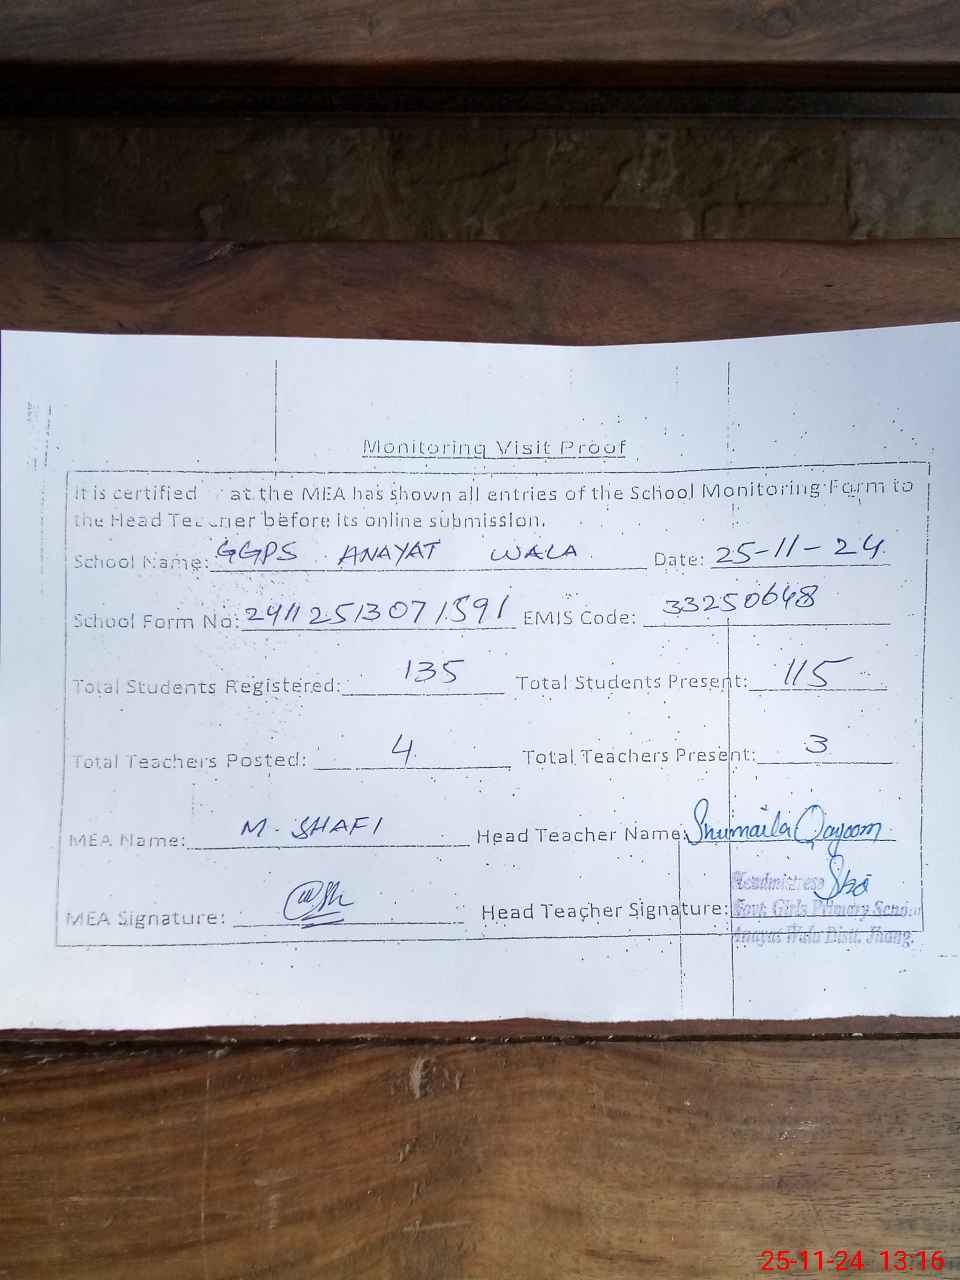 Monitoring Visit Proof
It is certified at the MEA has shown all entries of the School Monitoring Form to
the Head Teacher before its online submission.
School Name: GGPS ANAYAT WALA Date: 25-11-24
School Form No: 2411251307 1591 EMIS Code: 33250648
Total Students Registered: 135 Total Students Present: 115
Total Teachers Posted: 4 Total Teachers Present: 3
MEA Name: M. SHAFI Head Teacher Name: Shumaila Qayoom
Headmistress
MEA Signature: Head Teacher Signature: Govt. Girls Primary School
Anayat Wala Distt. Jhang.
25-11-24 13:16